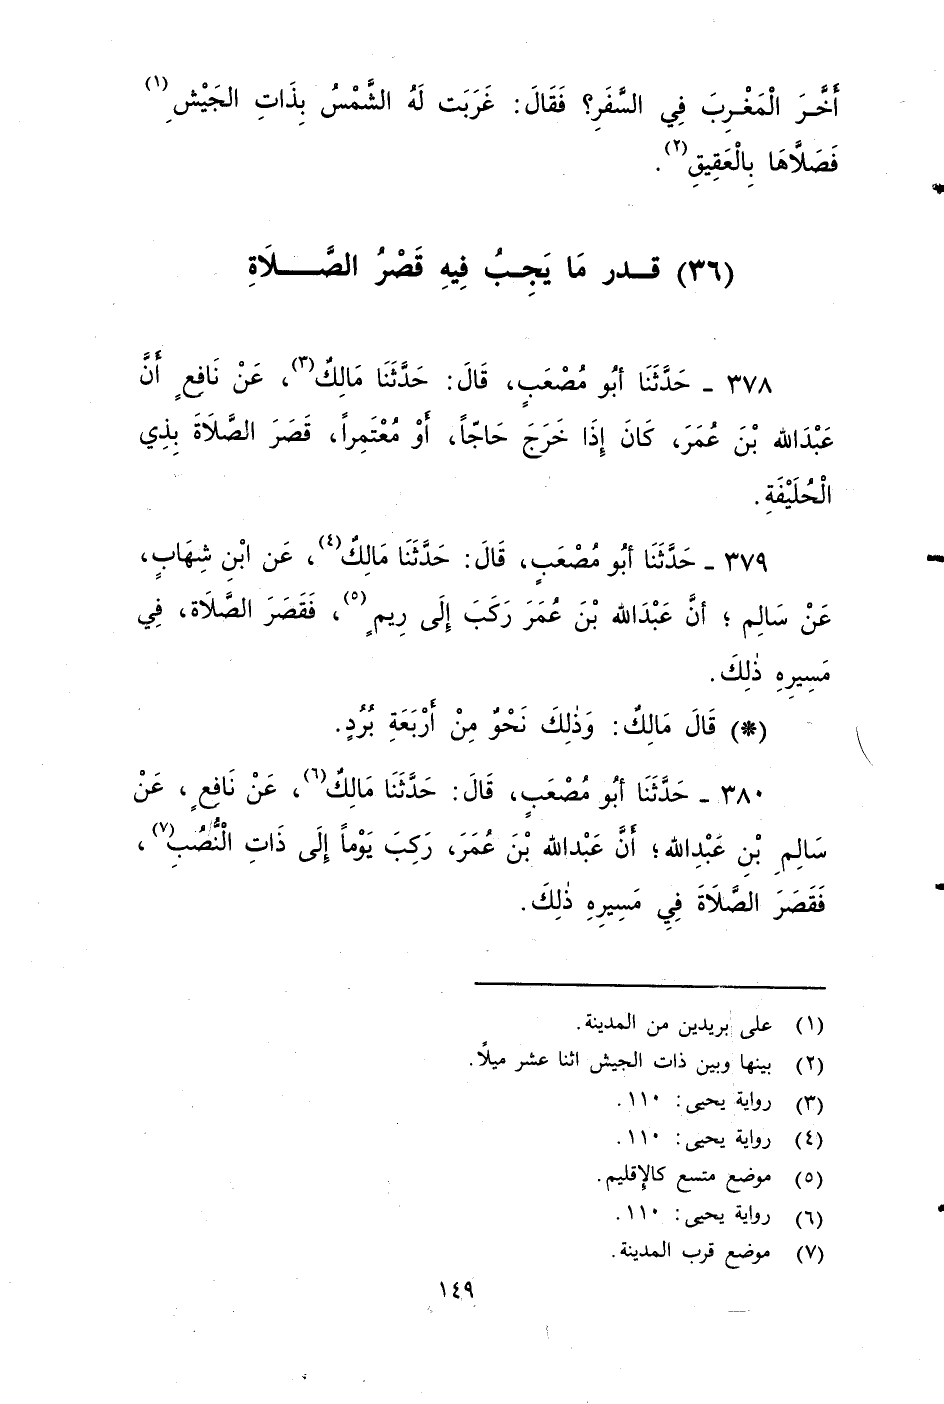 أَخَّـرَ الْمَغْـرِبَ فِي السَّفَرِ؟ فَقَالَ: غَرَبَت لَهُ الشَّمْسُ بِذَاتِ الجَيْشِ(١)
فَصَلَّاهَا بِالْعَقِيقِ(٢).
(٣٦) قـدر مَا يَجِـبُ فِيهِ قَصْرُ الصَّـلَاةِ
٣٧٨ ـ حَدَّثَنَا أبُو مُصْعَبٍ، قَالَ: حَدَّثَنَا مَالِكٌ(٣)، عَنْ نَافِعٍ أَنَّ
عَبْدَالله بْنَ عُمَرَ، كَانَ إِذَا خَرَجَ حَاجّاً، أَوْ مُعْتَمِراً، قَصَرَ الصَّلَاةَ بِذِي
الْحُلَيْفَةِ.
٣٧٩ ـ حَدَّثَنَا أبُو مُصْعَبٍ، قَالَ: حَدَّثَنَا مَالِكٌ(٤)، عَن ابْنِ شِهَابٍ،
عَنْ سَالِمٍ ؛ أنَّ عَبْدَالله بْنَ عُمَرَ رَكَبَ إِلَى رِيمٍ(٥)، فَقَصَرَ الصَّلَاة، فِي
مَسِيرِهِ ذٰلِكَ.
(*) قَالَ مَالِكٌ: وَذٰلِكَ نَحْوٌ مِنْ أَرْبَعَةِ بُرُدٍ.
٣٨٠ ـ حَدَّثَنَا أبُو مُصْعَبٍ، قَالَ: حَدَّثَنَا مَالِكٌ(٦)، عَنْ نَافِعٍ، عَنْ
سَالِمِ بْنِ عَبْدِالله؛ أَنَّ عَبْدَالله بْنَ عُمَرَ، رَكِبَ يَوْماً إِلَى ذَاتِ الْنُّصُبِ(٧)،
فَقَصَرَ الصَّلَاةَ فِي مَسِيرِهِ ذٰلِكَ.
(١) على بريدين من المدينة.
(٢) بينها وبين ذات الجيش اثنا عشر ميلًا.
(٣) رواية يحيى: ١١٠.
(٤) رواية يحيى: ١١٠.
(٥) موضع متسع كالإقليم.
(٦) رواية يحيى: ١١٠.
(٧) موضع قرب المدينة.
١٤٩